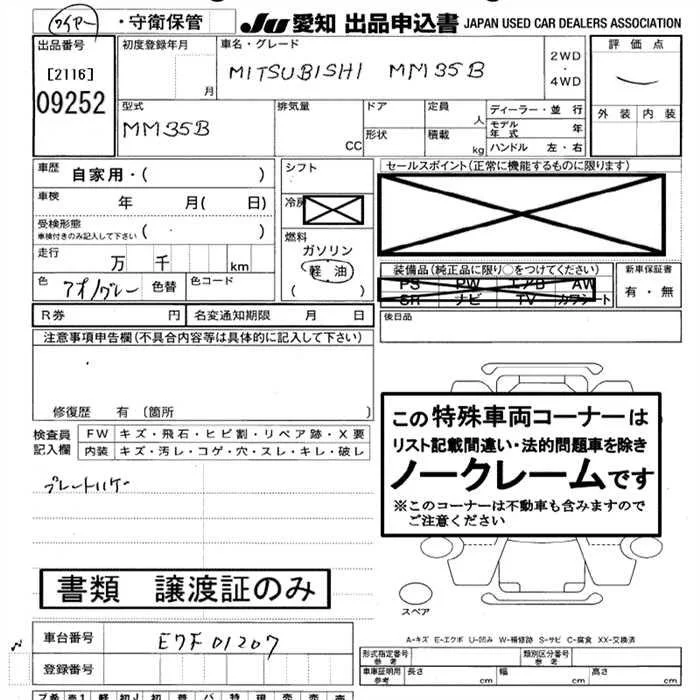 ワイヤー ・守衛保管 JU 愛知 出品申込書 JAPAN USED CAR DEALERS ASSOCIATION
出品番号 初度登録年月 車名・グレード 2WD ・ 4WD 評価点
[2116] 月 MITSUBISHI MM35B
09252 型式 排気量 ドア 定員 人 ディーラー・並 行 外 装 内 装
MM35B CC 形状 積載 kg モデル年式 年
ハンドル 左・右
車歴 自家用・( ) シフト セールスポイント(正常に機能するものに限ります)
車検 年 月( 日) 冷房
受検形態 車検付きのみ記入して下さい ( ) 燃料 ガソリン
走行 万 千 km 軽 油 装備品(純正品に限り○をつけてください) 新車保証書
色 アオ/グレー 色替 色コード ( ) PS PW エアB AW 有・無
SR ナビ TV カワシート
R券 円 名変通知期限 月 日 後日品
注意事項申告欄(不具合内容等は具体的に記入して下さい)
修復歴 有(箇所 )
この特殊車両コーナーは
リスト記載間違い・法的問題車を除き
ノークレームです
※このコーナーは不動車も含みますので
ご注意ください
検査員記入欄 FW キズ・飛石・ヒビ割・リペア跡・X要
内装 キズ・汚レ・コゲ・穴・スレ・キレ・破レ
プレートハケー
書類 譲渡証のみ
スペア
車台番号 E7F01207
A-キズ E-エクボ U-凹み W-補修跡 S-サビ C-腐食 XX-交換済
登録番号 形式指定番号 参考 類別区分番号 参考
車庫証明用 参考 長さ cm 幅 cm 高さ cm